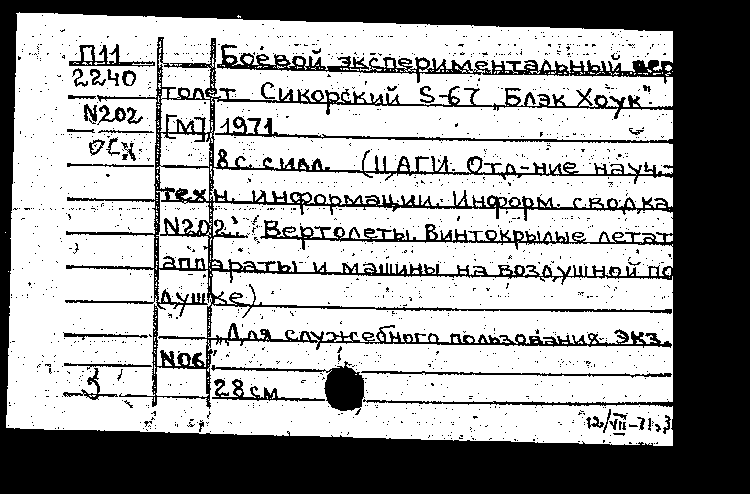 П11 Боевой экспериментальный вер
2240
толет Сикорский S-67 „Блэк Хоук".
N202
[М], 1971.
осх
8 с. с илл. (ЦАГИ. Отд-ние науч.-
техн. информации. Информ. сводка
N202. (Вертолеты. Винтокрылые летат
аппараты и машины на воздушной по
душке).
„Для служебного пользования. Экз.
N06"
3 28 см
12/VII-71.